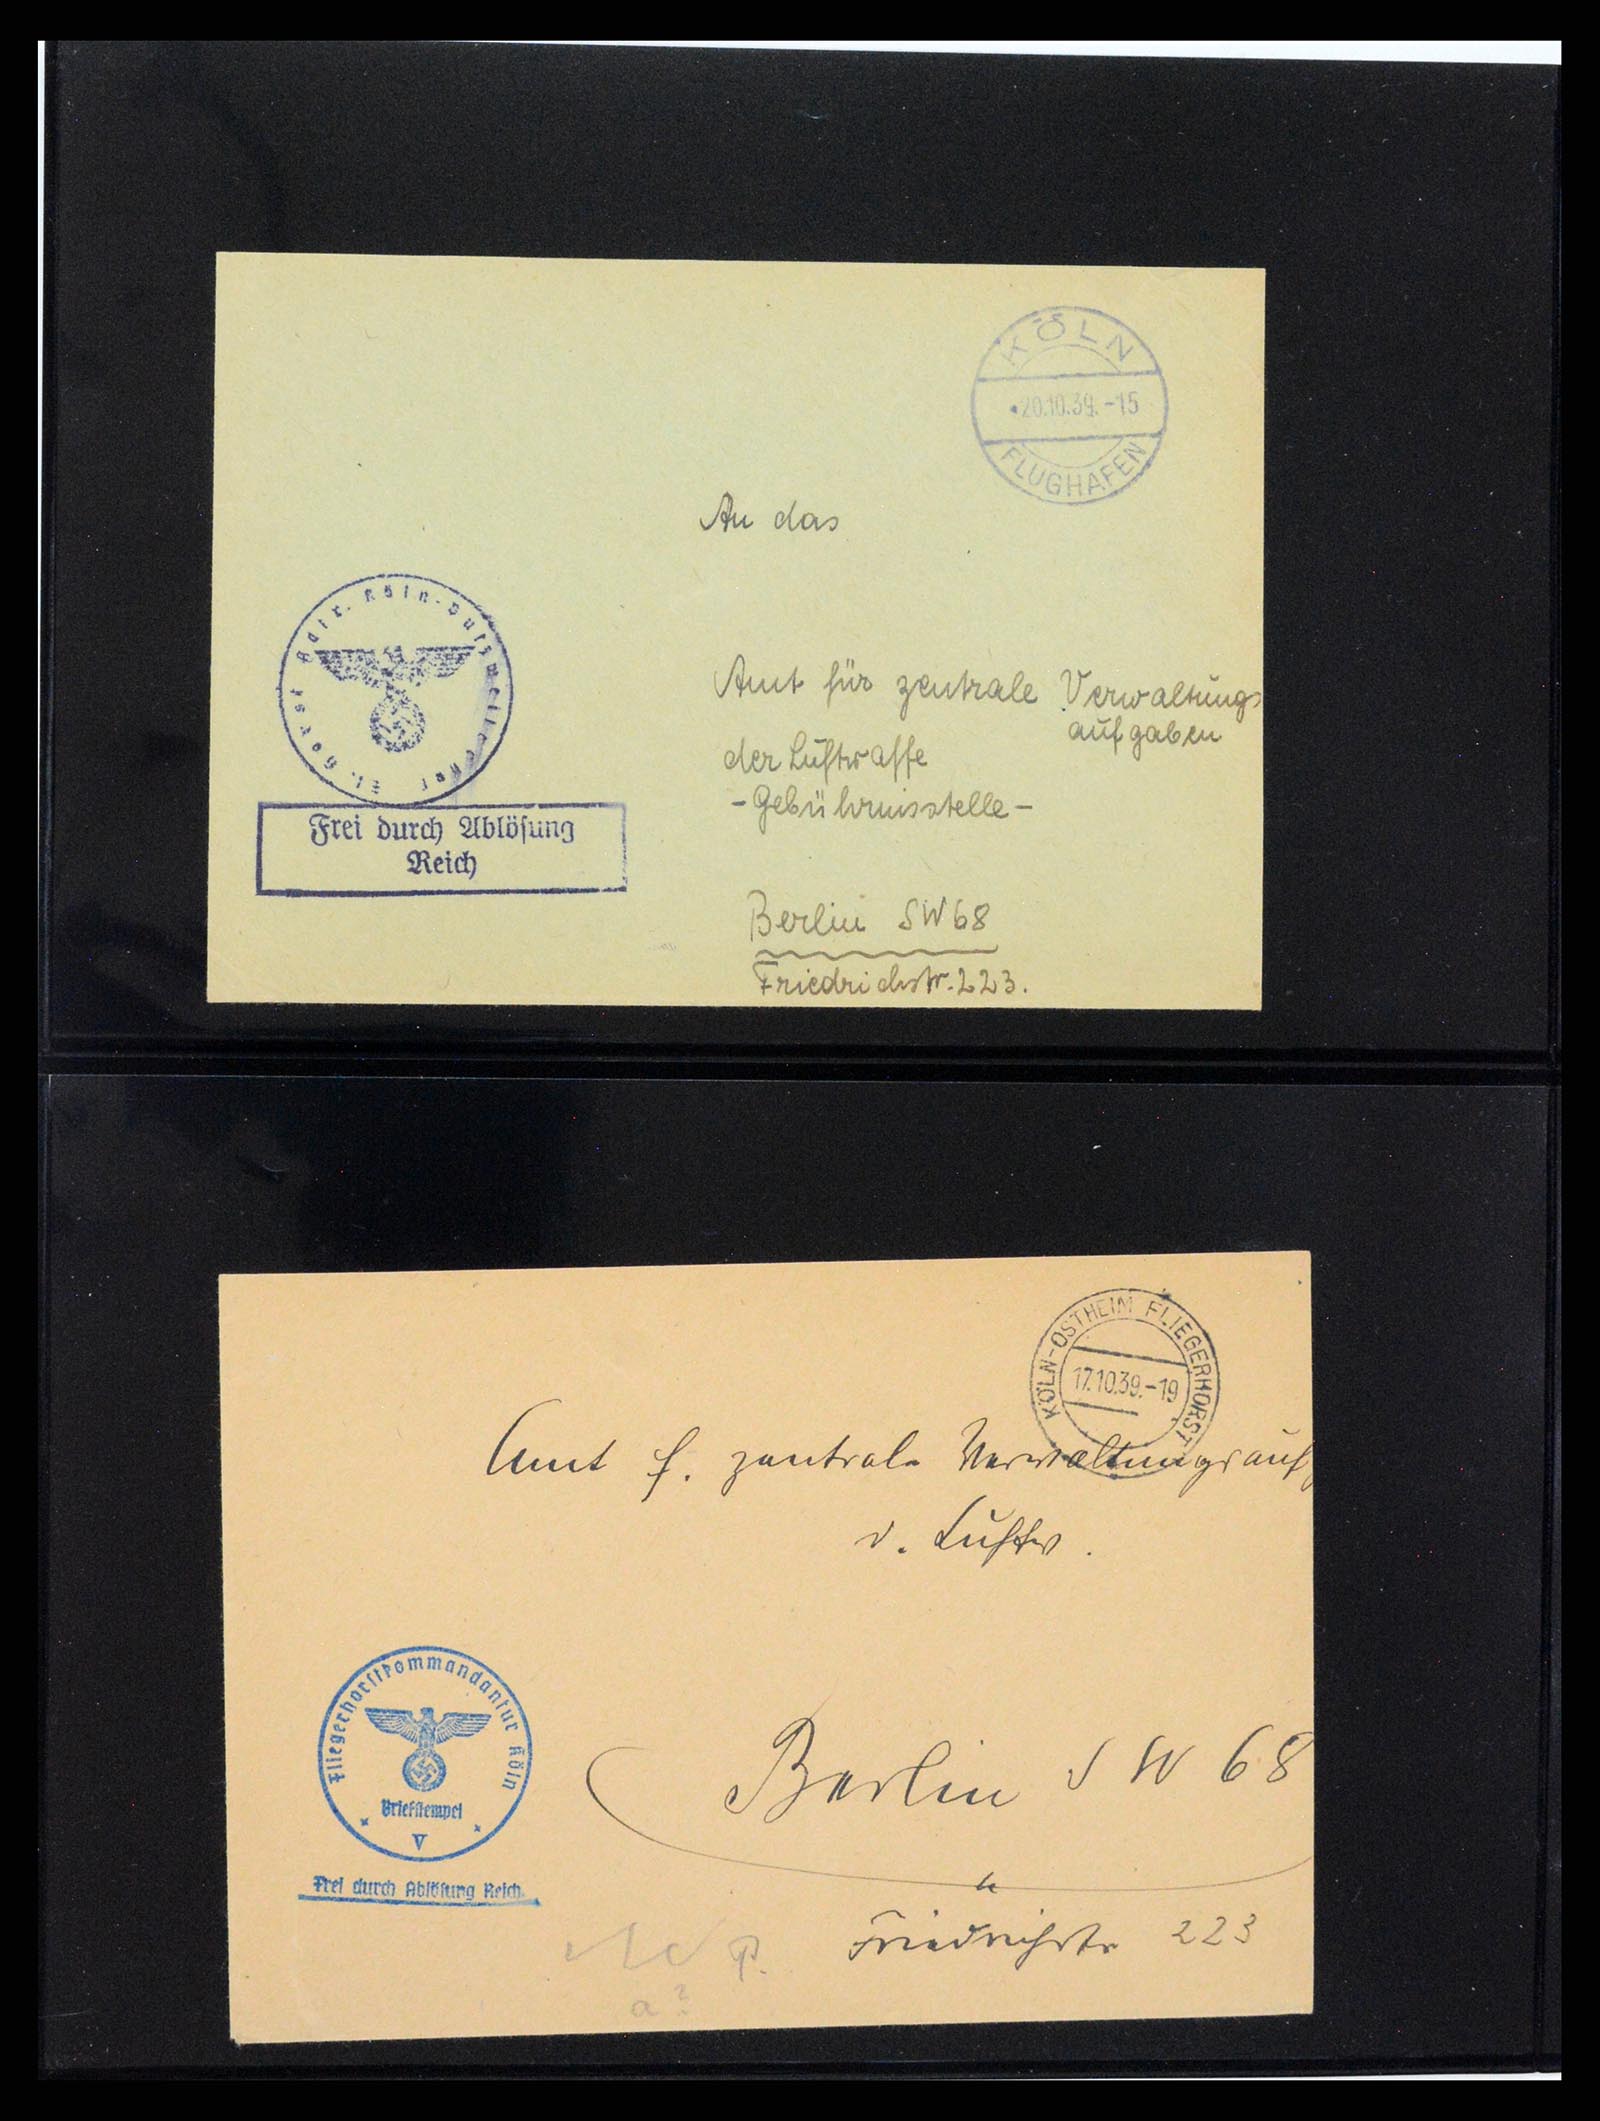 KÖLN
20.10.39.-15
FLUGHAFEN
An das
Amt für zentrale Verwaltungs
aufgaben
der Luftwaffe
-Gebührnisstelle-
Fl. Horst Kdtr. Köln-Butzweilerhof
Frei durch Ablösung
Reich
Berlin SW 68
Friedrichstr. 223.
KÖLN-OSTHEIM FLIEGERHORST
17.10.39.-19
Amt f. zentrale Verwaltungsauf
d. Luftw.
Fliegerhorstkommandantur Köln
Briefstempel
V
Frei durch Ablösung Reich.
Berlin SW 68
Friedrichstr 223
a?